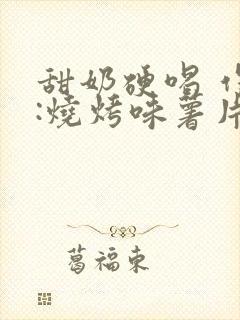 甜奶硬唱
:燒烤味薯片
葛福東